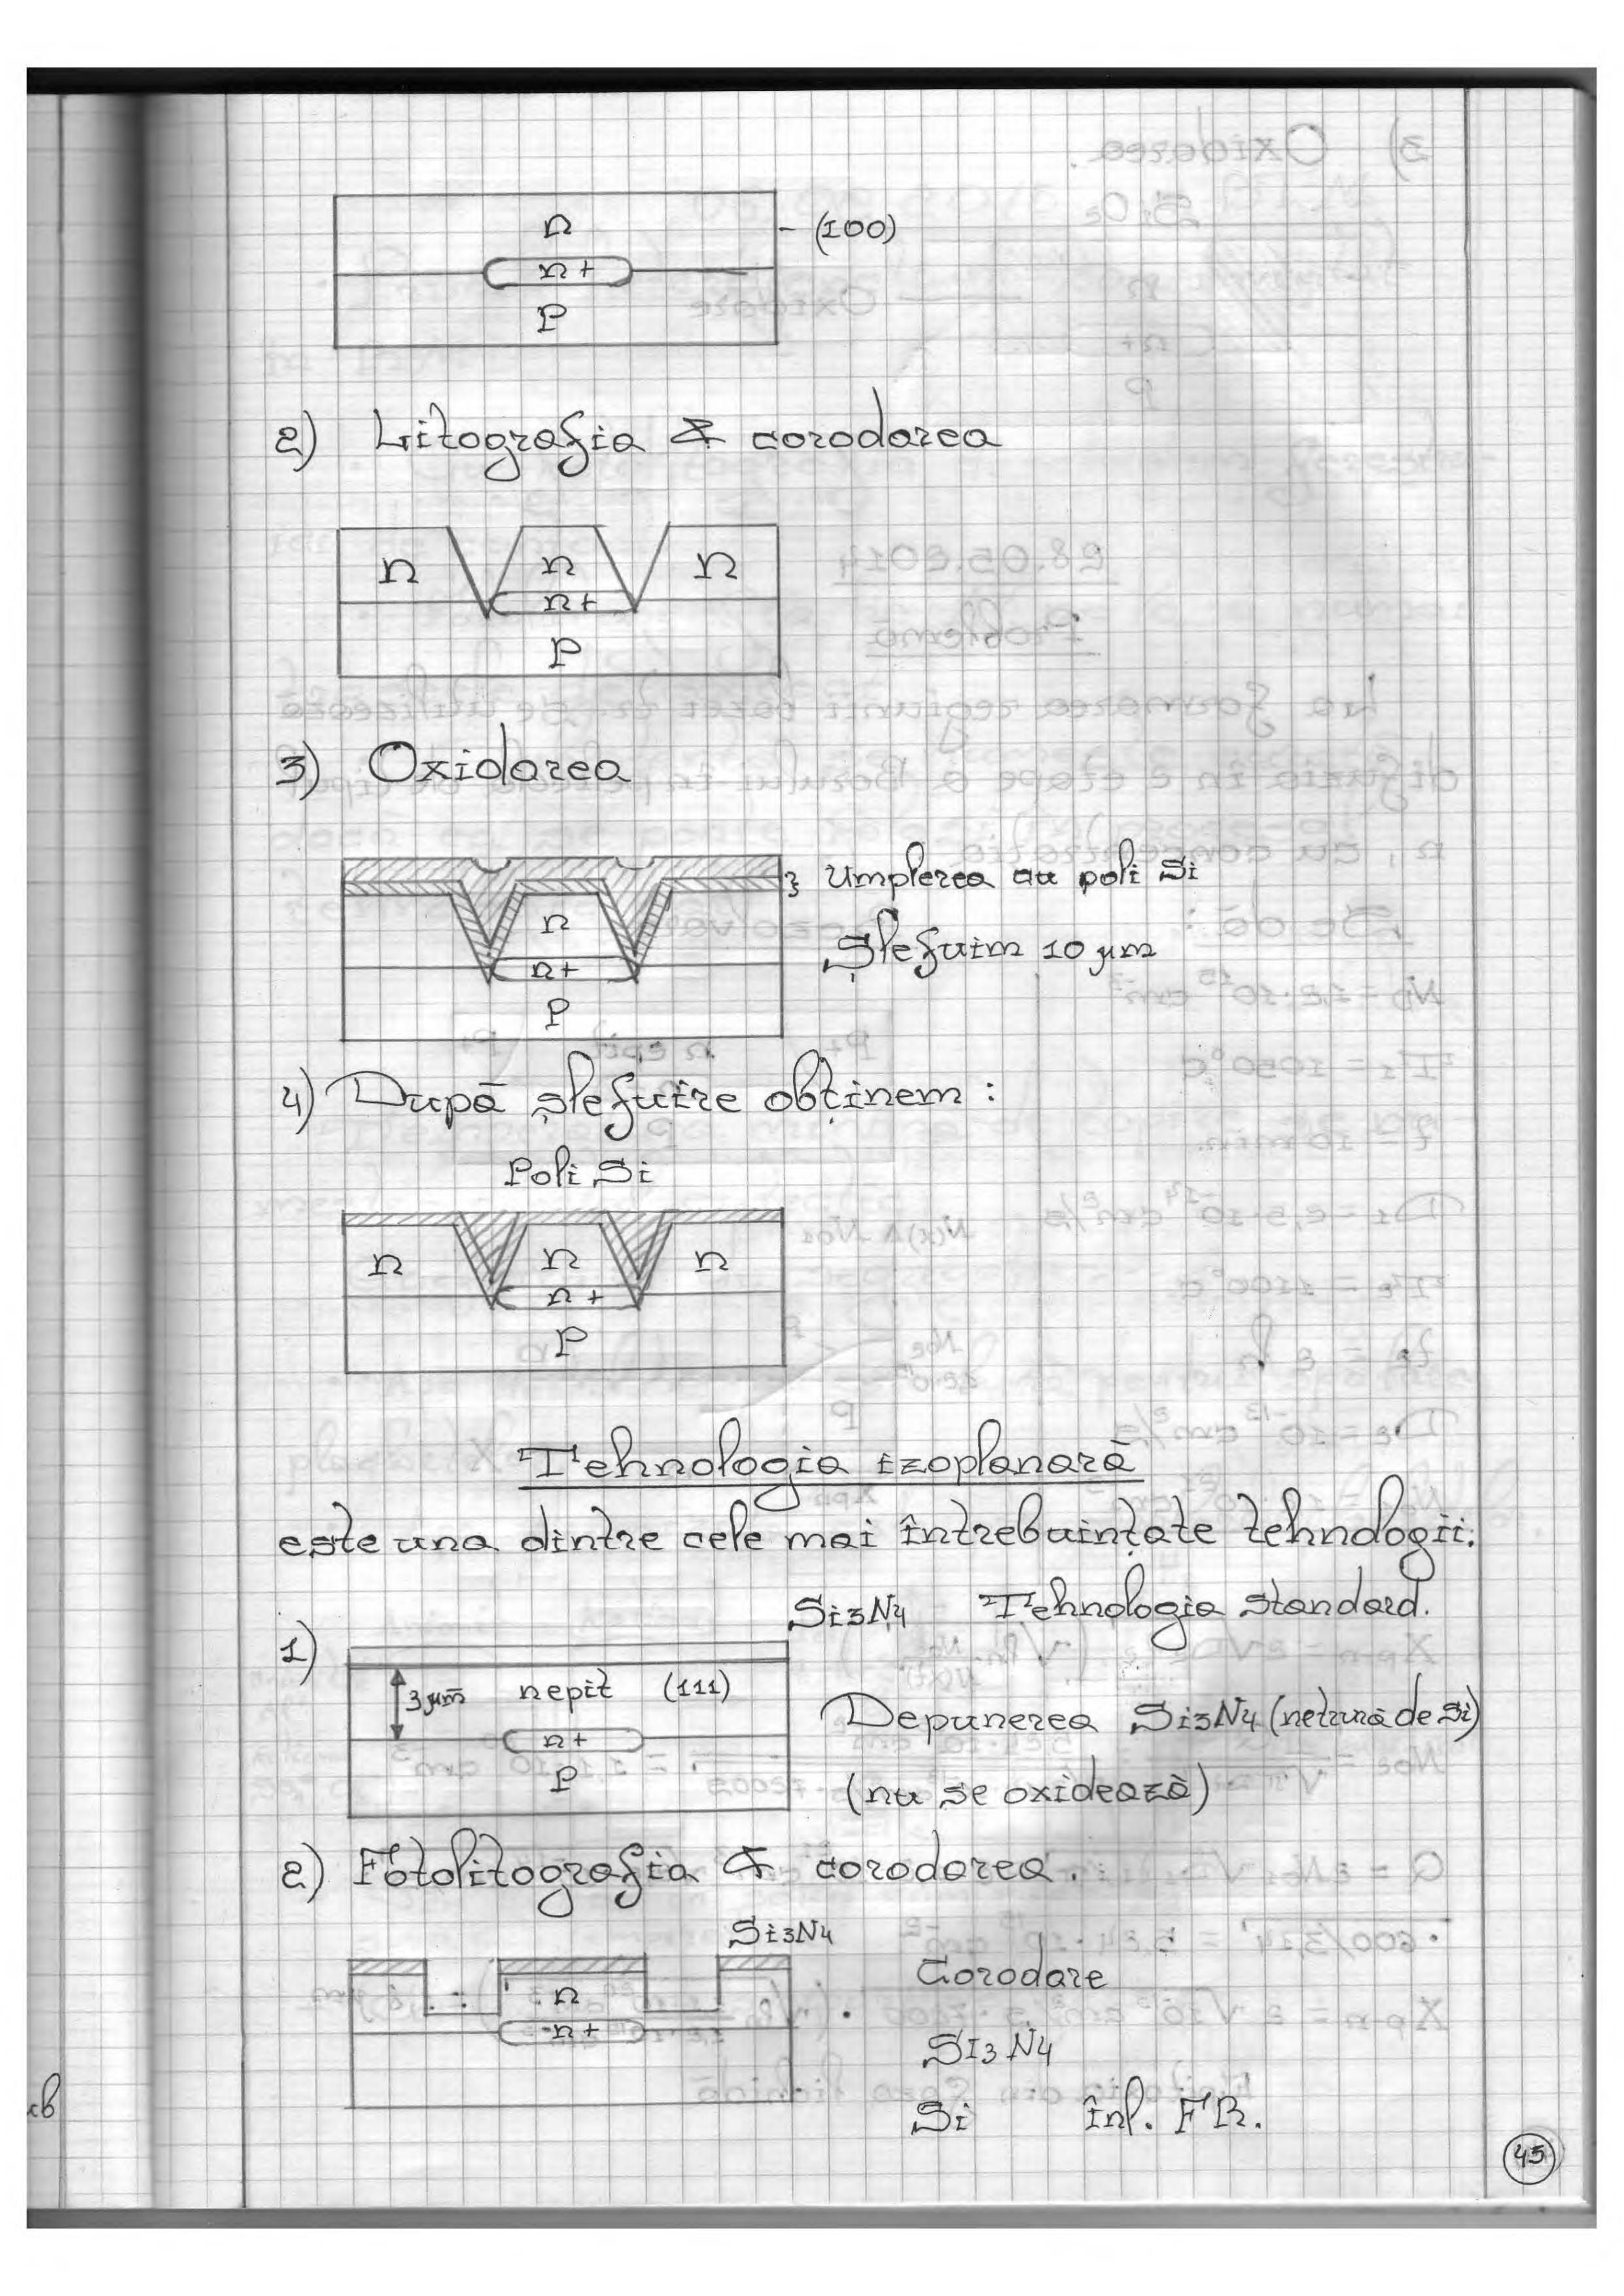 n
n+
P
- (100)
2) Litografia & corodarea
n n n
n+
P
3) Oxidarea
n
n+
P
} Umplerea cu poli Si
Șlefuim 10 µm
4) După șlefuire obținem :
Poli Si
n n n
n+
P
Tehnologia izoplanară
este una dintre cele mai întrebuințate tehnologii.
Si3N4 Tehnologia standard.
1)
3µm nepit (111)
n+
P
Depunerea Si3N4 (netrură de Si)
(nu se oxidează)
2) Fotolitografia & corodarea.
Si3N4
n
n+
Corodare
SI3N4
Si înl. FR.
45